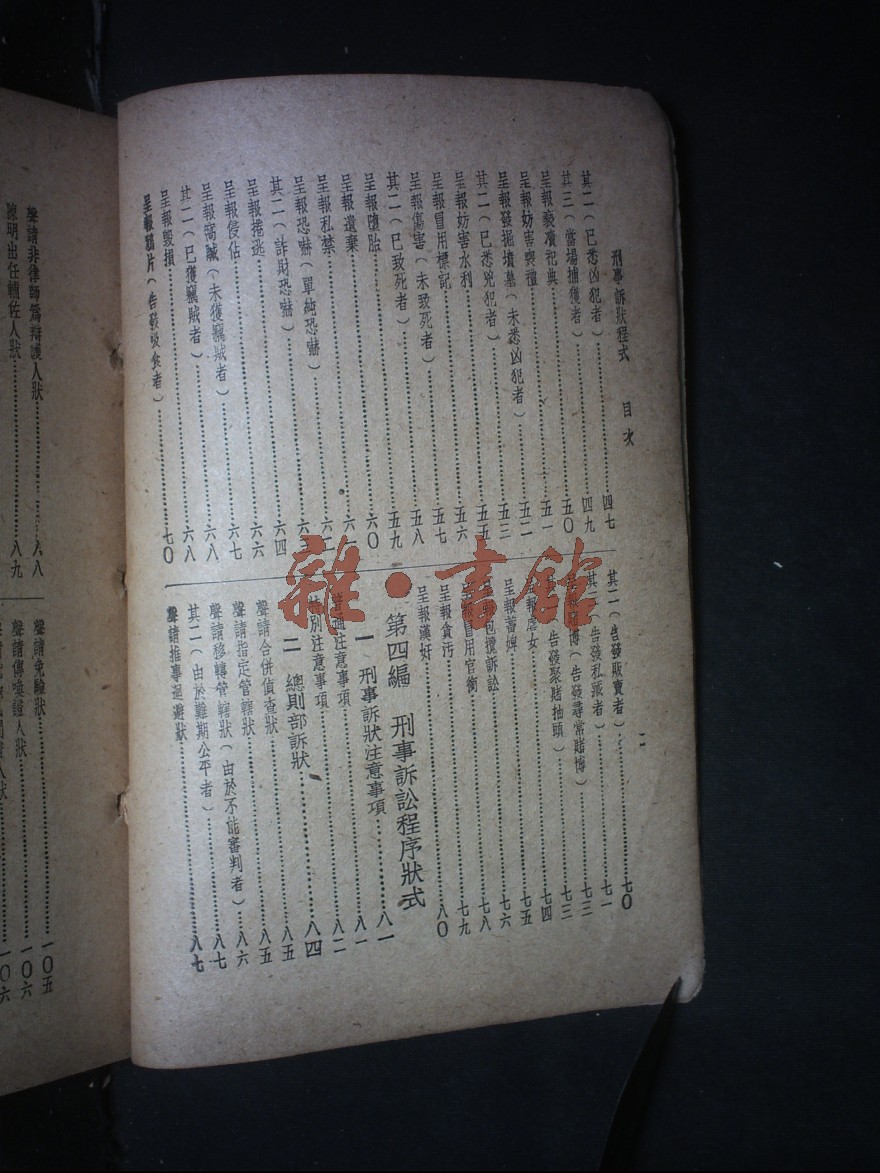 刑事訴狀程式　目次
其二（已悉凶犯者）……四七
其三（當場捕獲者）……四九
呈報褻瀆祀典……五〇
呈報妨害喪禮……五一
呈報發掘墳墓（未悉凶犯者）……五二
其二（已悉兇犯者）……五三
呈報妨害水利……五五
呈報冒用標記……五六
呈報傷害（未致死者）……五七
其二（已致死者）……五八
呈報墮胎……五九
呈報遺棄……六〇
呈報私禁……六一
呈報恐嚇（單純恐嚇）……六二
其二（詐財恐嚇）……六三
呈報捲逃……六四
呈報侵佔……六六
呈報窩贓（未獲竊賊者）……六七
其二（已獲竊賊者）……六八
呈報毀損……六八
呈報鴉片（告發吸食者）……七〇
二
其二（告發販賣者）……七〇
其三（告發私販者）……七一
呈報賭博（告發尋常賭博）……七三
（告發聚賭抽頭）……七三
虐女……七四
呈報蓄婢……七五
包攬訴訟……七六
冒用官銜……七八
呈報貪污……七九
呈報漢奸……八〇
第四編　刑事訴訟程序狀式
一　刑事訴狀注意事項……八一
普通注意事項……八一
特別注意事項……八二
二　總則部訴狀……八四
聲請合併偵查狀……八五
聲請指定管轄狀……八五
聲請移轉管轄狀（由於不能審判者）……八六
其二（由於難期公平者）……八七
聲請推事迴避狀……八七
聲請非律師為辯護人狀……八八
陳明出任輔佐人狀……八九
聲請免驗狀……一〇五
聲請傳喚證人狀……一〇六
一〇六
雜·書館